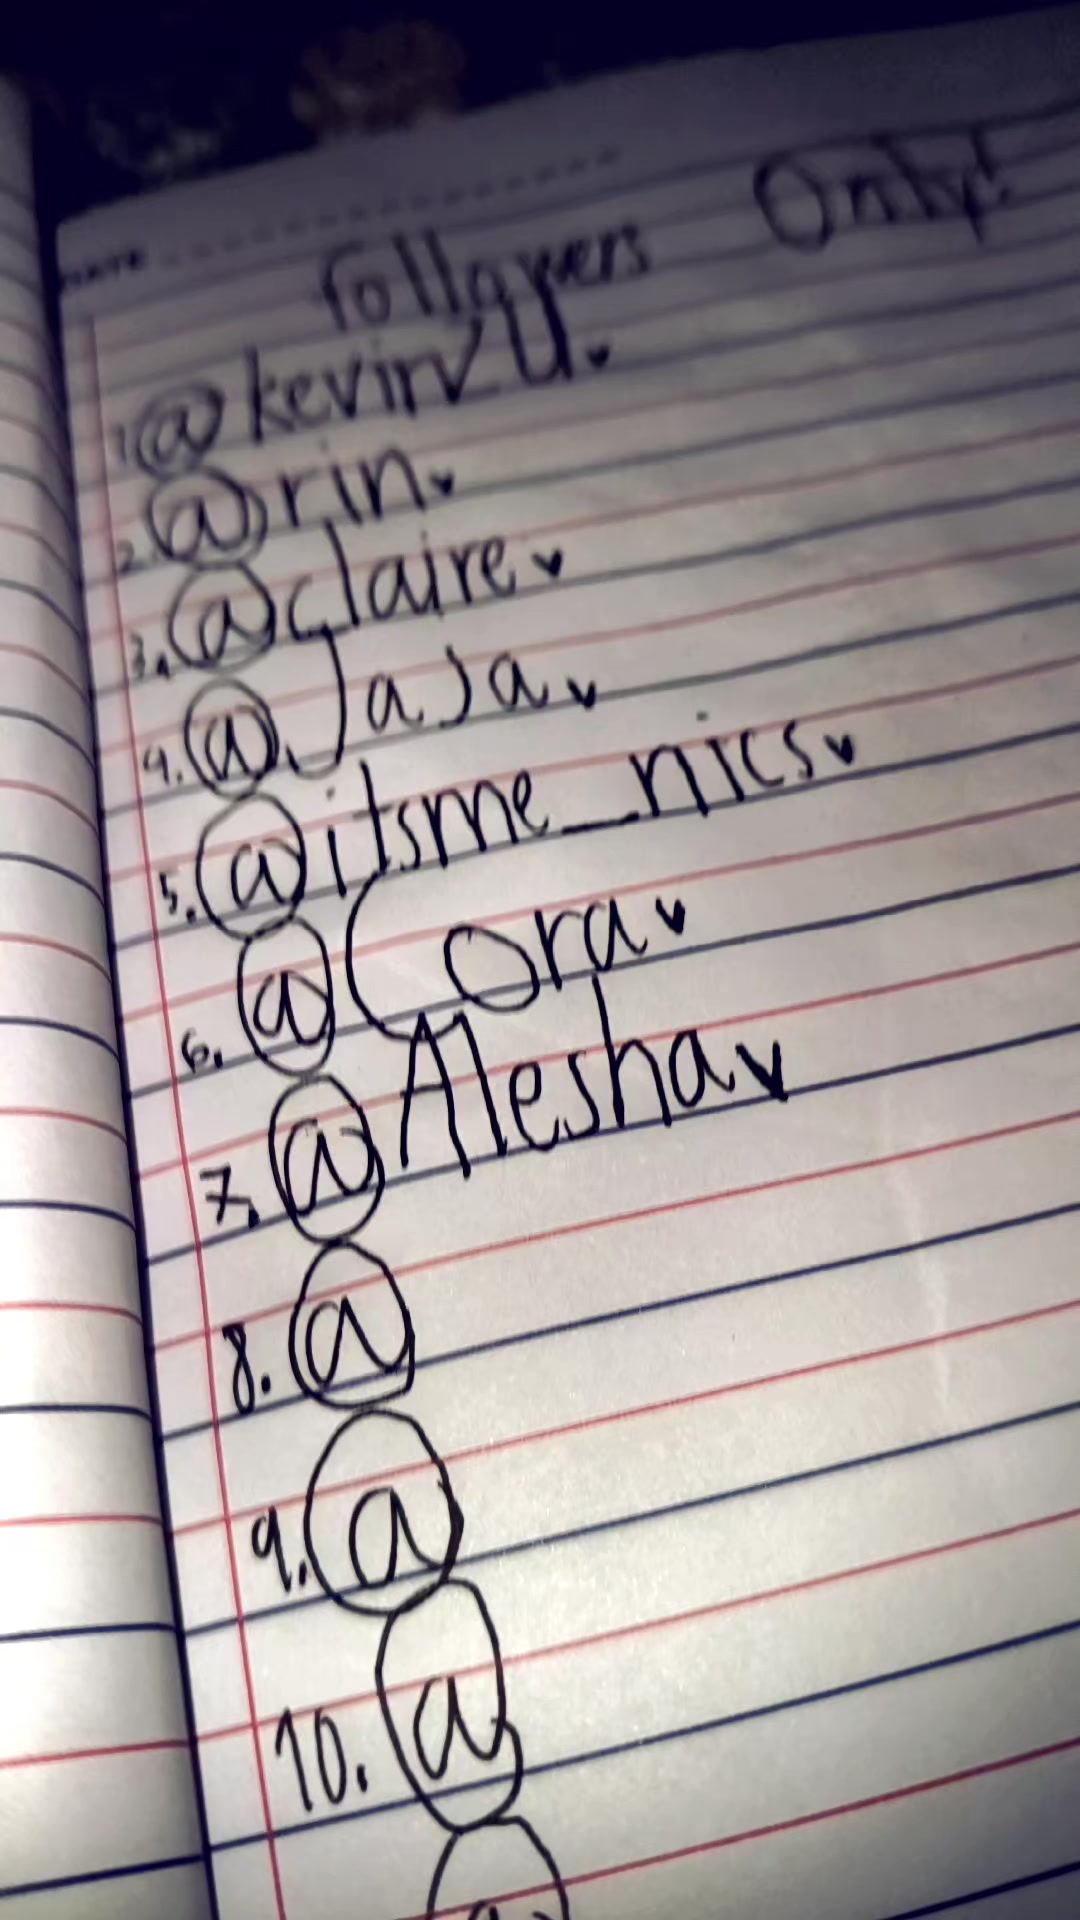 DATE
followers Only!
1. @kevin U.
2. @rin
3. @claire
4. @JaJa
5. @itsme_nics
6. @Cora
7. @Alesha
8. @
9. @
10. @
@